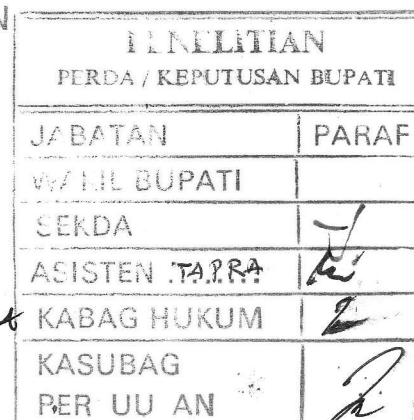 N
PENELITIAN
PERDA / KEPUTUSAN BUPATI
JABATAN PARAF
WAKIL BUPATI
SEKDA
ASISTEN TAPRA
KABAG HUKUM
KASUBAG
PER UU AN